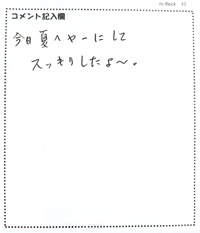 コメント記入欄
今日夏ヘヤーにして
スッキリしたよ〜。